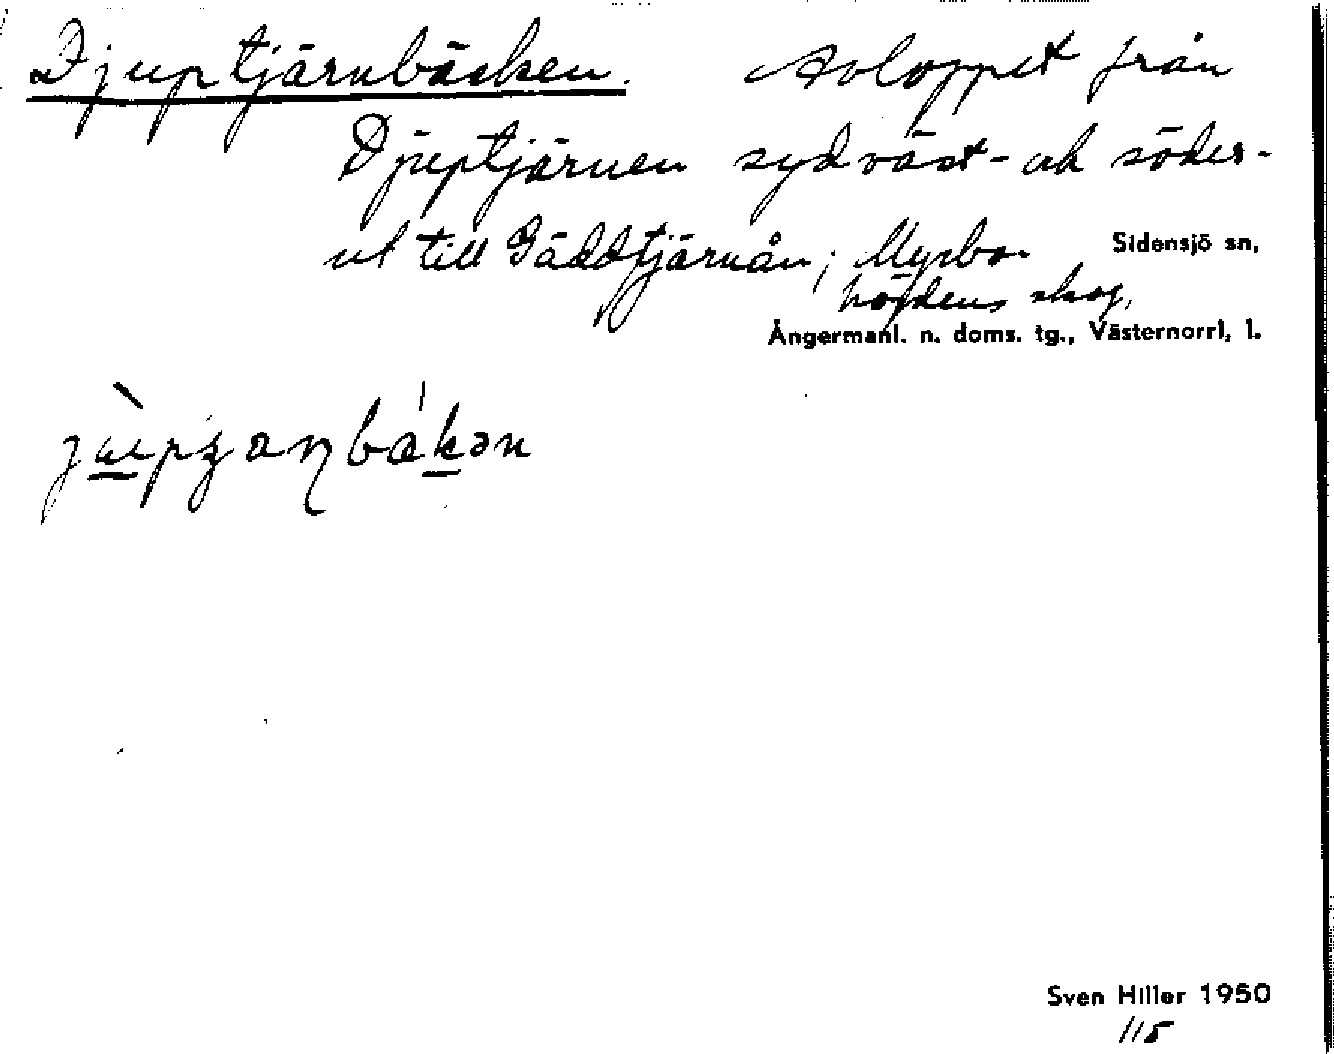 Djuptjärnbäcken. Avloppet från
Djuptjärnen sydväst- och söder-
ut till Gäddtjärnån; Myrbo-
höjdens skog.
Sidensjö sn,
Ångermanl. n. doms. tg., Västernorrl. l.
Sven Hiller 1950
115